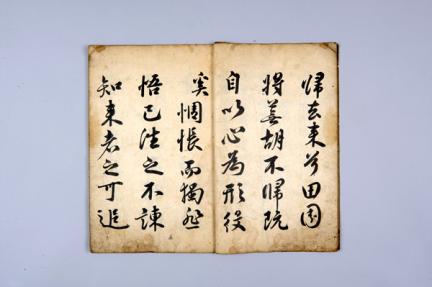 歸去來兮田園
將蕪胡不歸既
自以心為形役
奚惆悵而獨悲
悟已往之不諫
知來者之可追